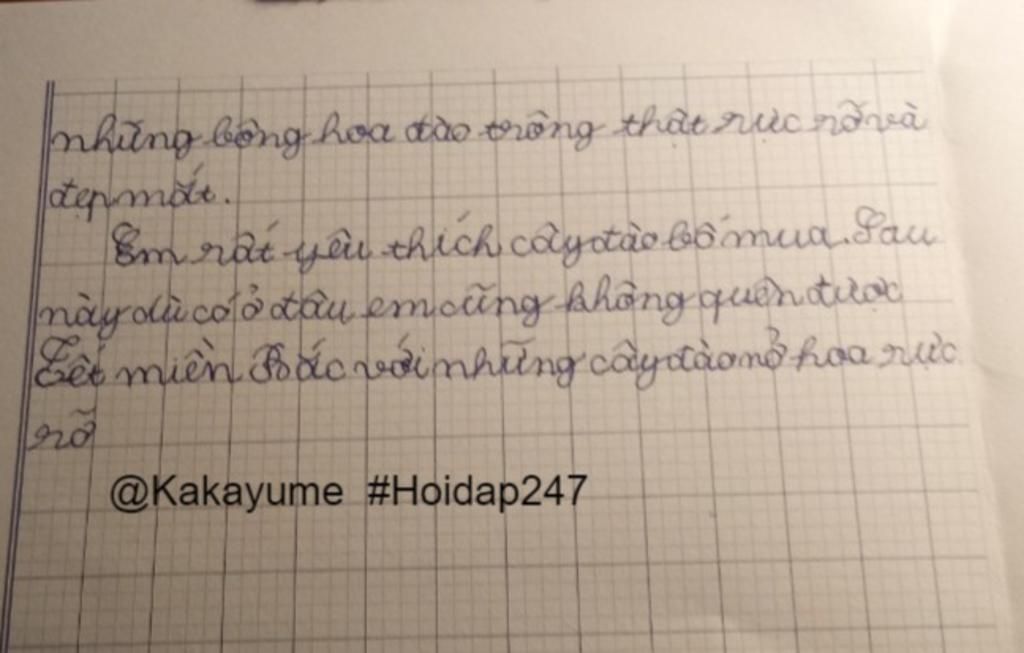 những bông hoa đào trông thật rực rỡ và
đẹp mắt.
Em rất yêu thích cây đào bố mua. Sau
này dù có ở đâu em cũng không quên được
Tết miền Bắc với những cây đào nở hoa rực
rỡ
@Kakayume #Hoidap247